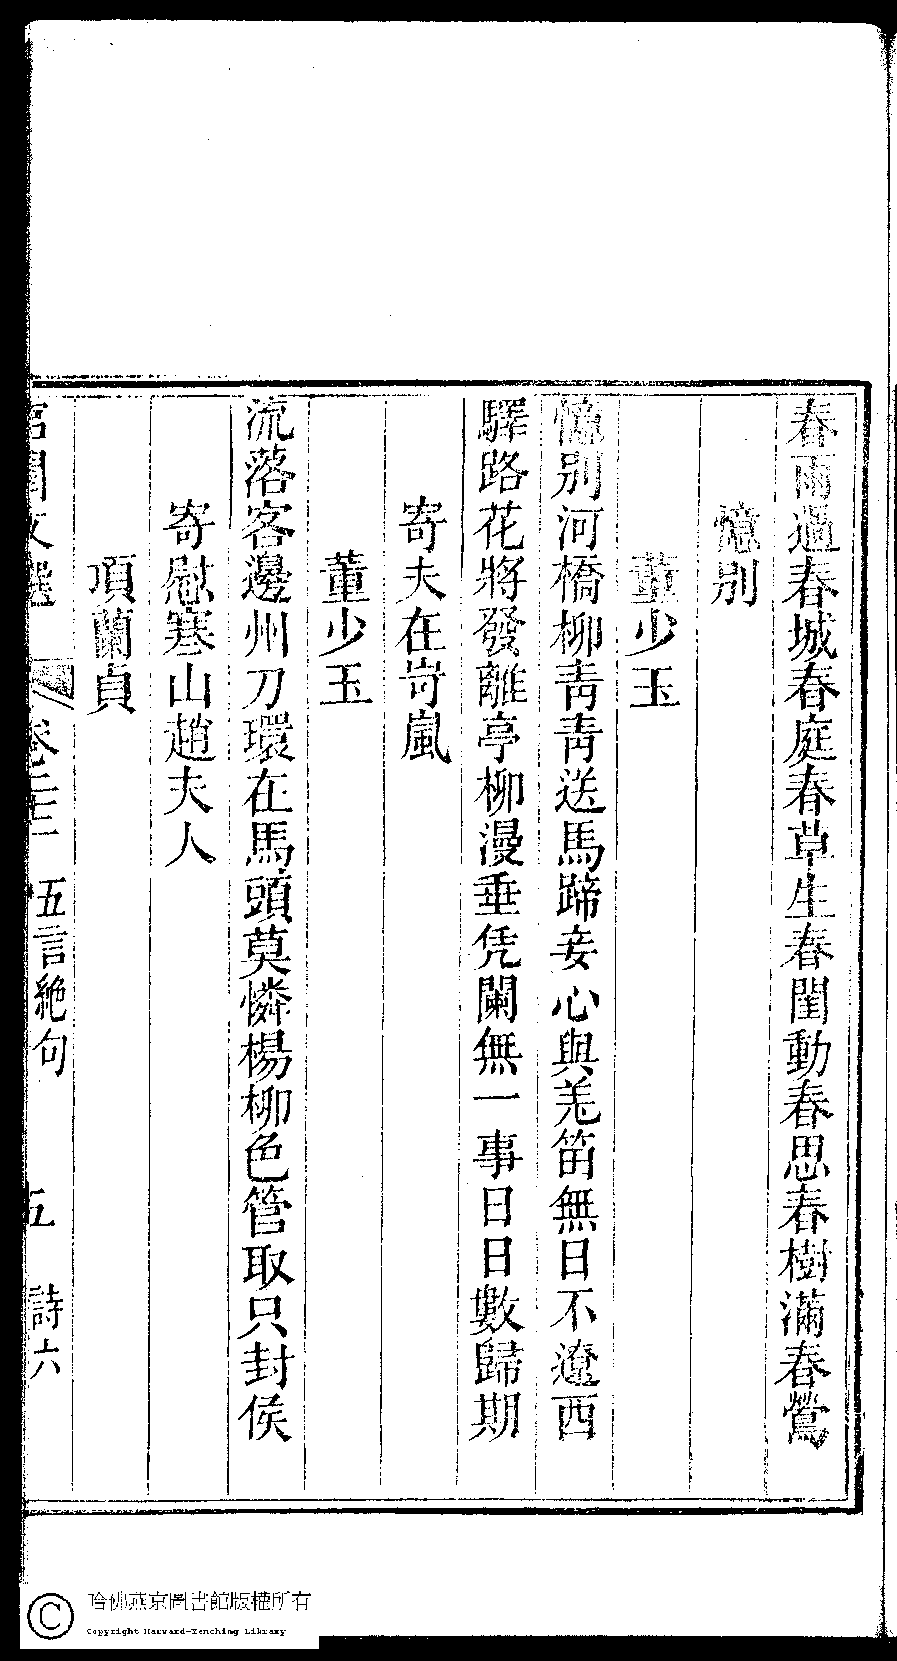 春雨過春城春庭春草生春閨動春思春樹滿春鶯
憶别
董少玉
憶别河橋柳青青送馬蹄妾心與羗笛無日不遼西
驛路花將發離亭柳漫垂凭闌無一事日日數歸期
寄夫在岢嵐
董少玉
流落客邊州刀環在馬頭莫憐楊柳色管取只封侯
寄慰寒山趙夫人
項蘭貞
宮閨文選 卷二十二 五言絶句 五 詩六
哈佛燕京圖書館版權所有
Copyright Harvard-Yenching Library